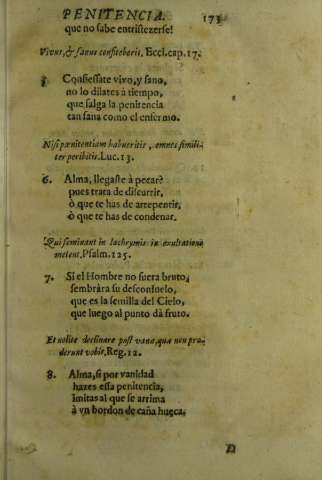 PENITENCIA. 173
que no sabe entristezerse!
Vivus, & sanus confiteberis, Eccl. cap. 17.
5. Confiessate vivo, y sano,
no lo dilates à tiempo,
que salga la penitencia
tan sana como el enfermo.
Nisi pænitentiam habueritis, omnes simili-
ter peribitis. Luc. 13.
6. Alma, llegaste à pecar?
pues trata de discurrir,
ò que te has de arrepentir,
ò que te has de condenar.
Qui seminant in lachrymis in exultatione
metent, Psalm. 125.
7. Si el Hombre no fuera bruto,
sembràra su desconsuelo,
que es la semilla del Cielo,
que luego al punto dà fruto.
Et nolite declinare post vana, quæ non pro-
derunt vobis, Reg. 12.
8. Alma, si por vanidad
hazes essa penitencia,
imitas al que se arrima
à vn bordon de caña hueca.